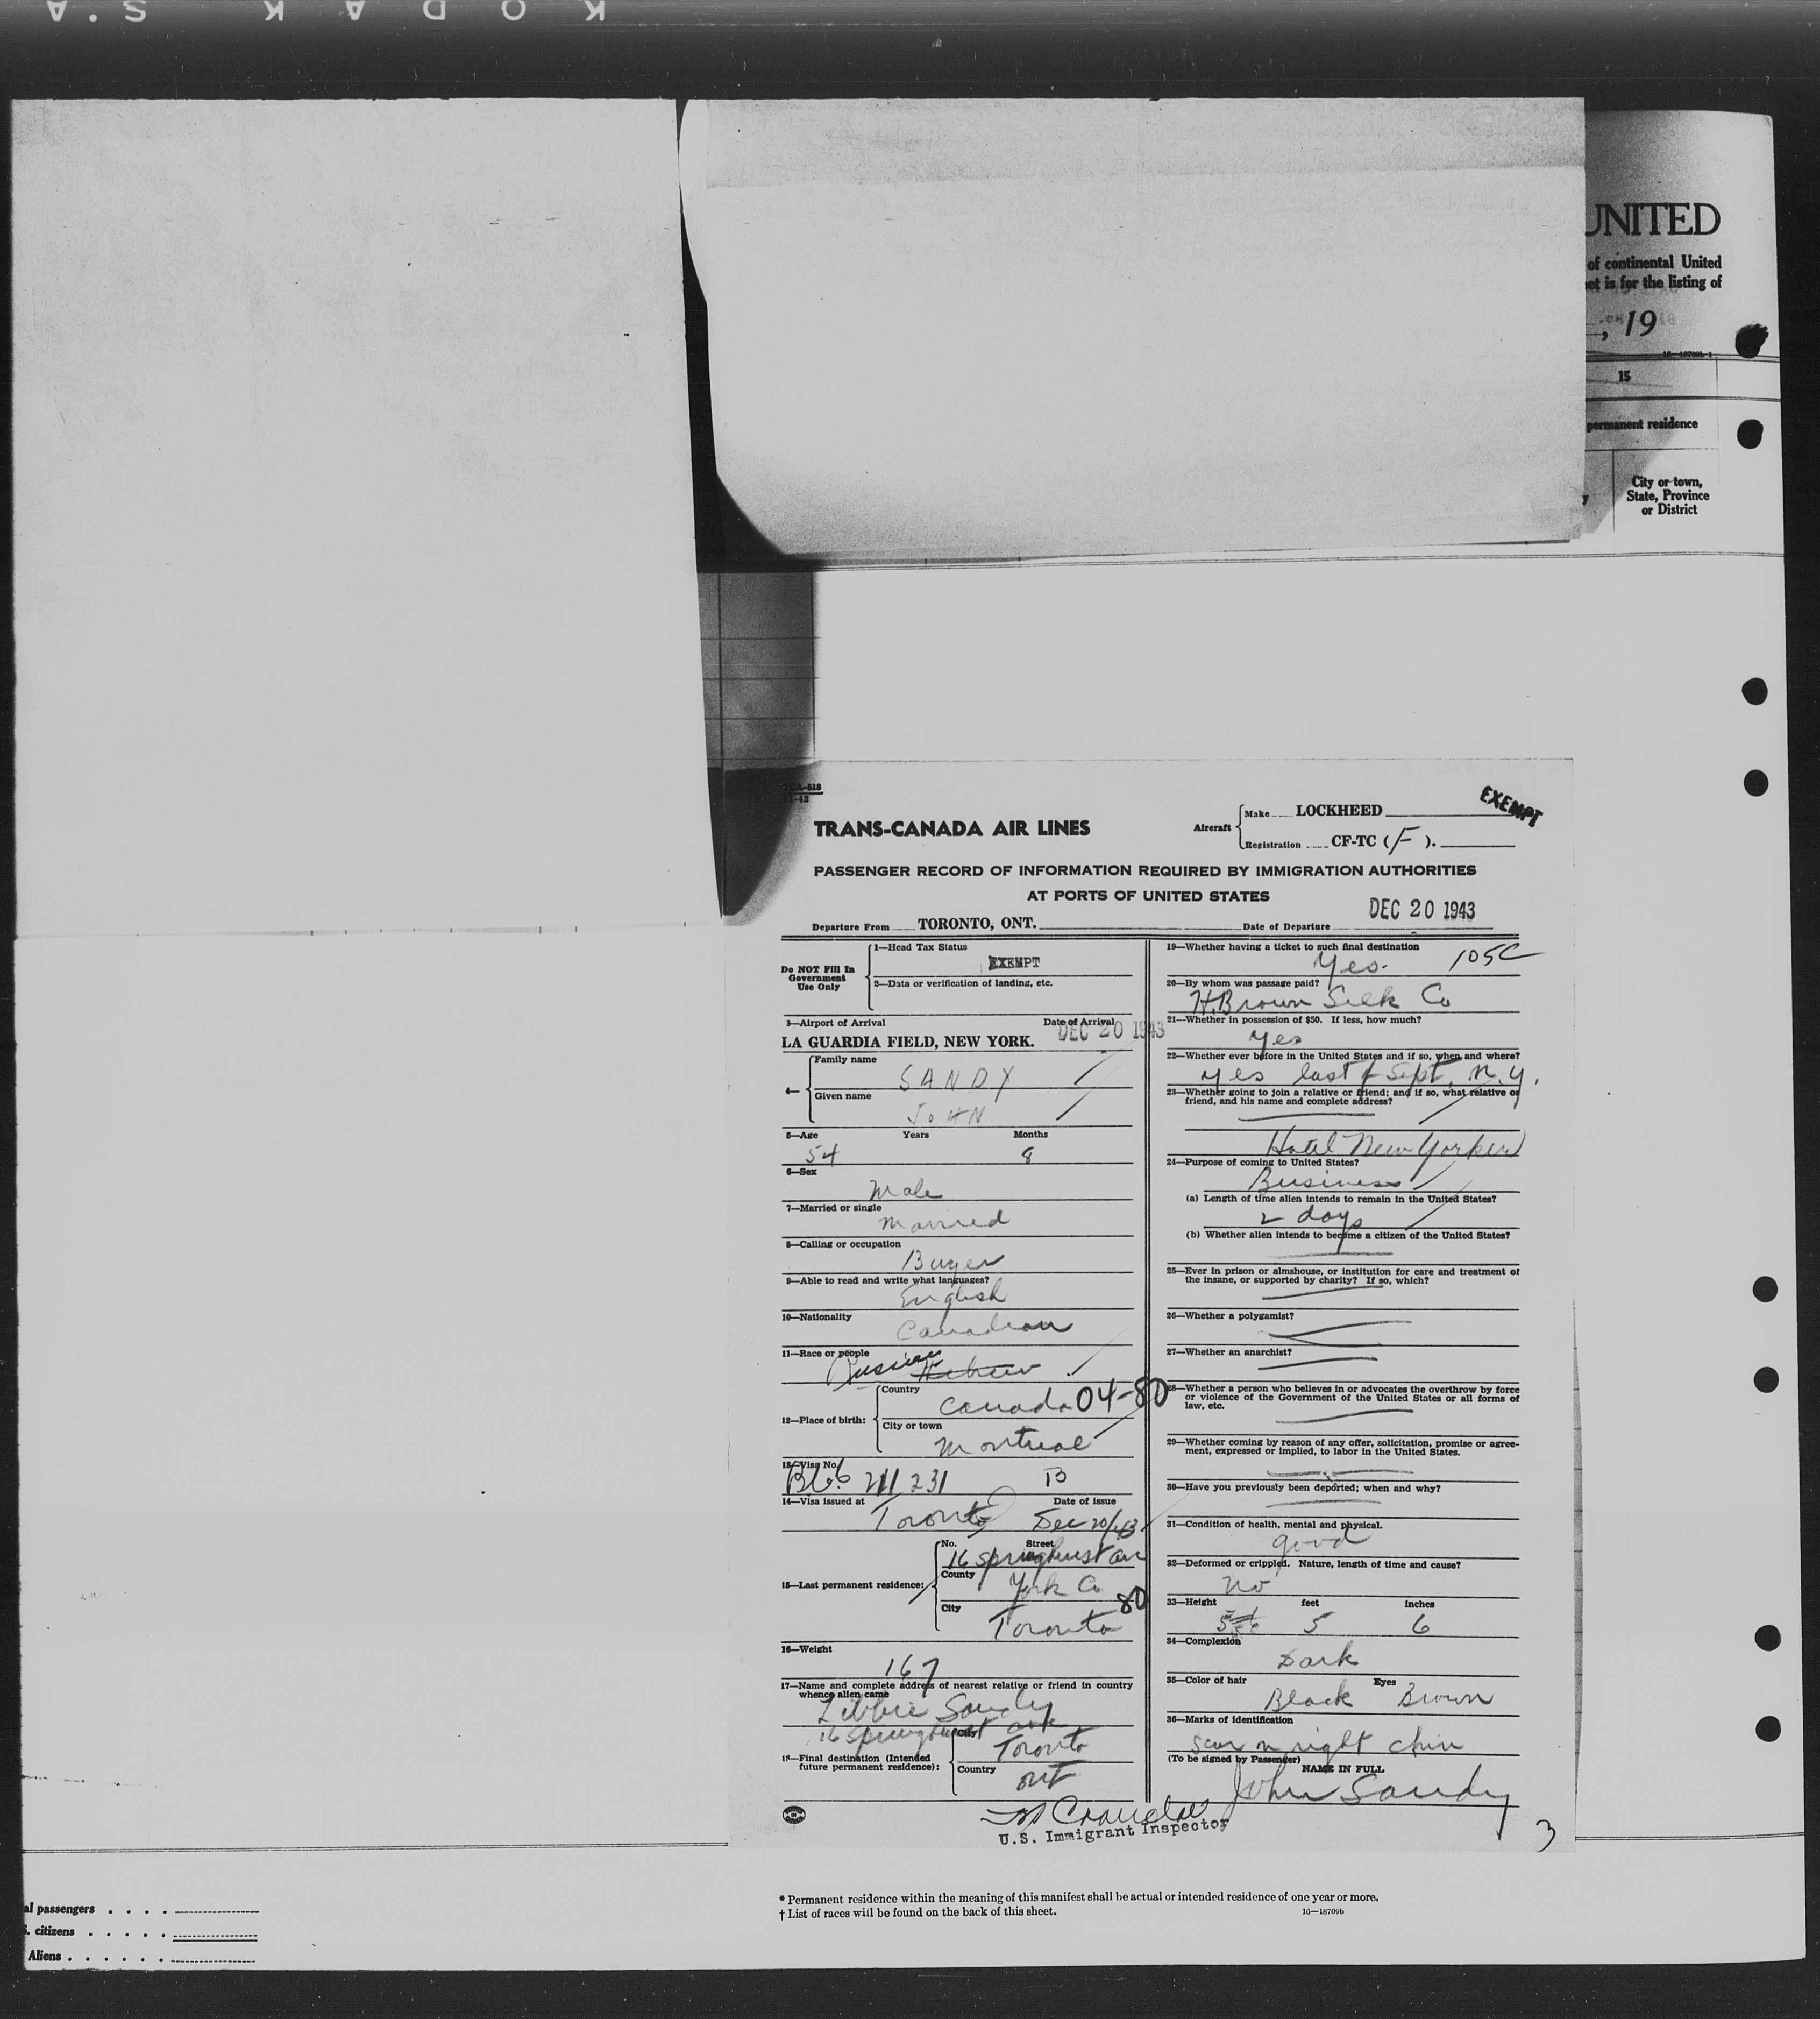 UNITED
of continental United
is for the listing of
, 19
15
permanent residence
City or town,
State, Province
or District
TRANS-CANADA AIR LINES
Aircraft
Make LOCKHEED
Registration CF-TC (F).
EXEMPT
PASSENGER RECORD OF INFORMATION REQUIRED BY IMMIGRATION AUTHORITIES
AT PORTS OF UNITED STATES
Departure From TORONTO, ONT. Date of Departure DEC 20 1943
Do NOT Fill In
Government
Use Only
1—Head Tax Status
EXEMPT
2—Data or verification of landing, etc.
3—Airport of Arrival Date of Arrival
LA GUARDIA FIELD, NEW YORK. DEC 20 1943
4—
Family name
SANDY
Given name
JOHN
5—Age Years Months
54 8
6—Sex
Male
7—Married or single
Married
8—Calling or occupation
Buyer
9—Able to read and write what languages?
English
10—Nationality
Canadian
11—Race or people
Russian Hebrew
12—Place of birth:
Country
Canada 04-80
City or town
Montreal
13—Visa No.
231 B
14—Visa issued at Date of issue
Toronto Dec 20/43
15—Last permanent residence:
No. Street
16 Springhurst ave
County
York Co
80
City
Toronto
16—Weight
167
17—Name and complete address of nearest relative or friend in country
whence alien came
Libbie Sandy
16 Springhurst ave
18—Final destination (Intended
future permanent residence):
City
Toronto
Country
Ont
19—Whether having a ticket to such final destination
Yes. 105C
20—By whom was passage paid?
H. Brown Silk Co
21—Whether in possession of $50. If less, how much?
Yes
22—Whether ever before in the United States and if so, when and where?
Yes last Sept. N.Y.
23—Whether going to join a relative or friend; and if so, what relative or
friend, and his name and complete address?
Hotel New Yorker
24—Purpose of coming to United States?
Business
(a) Length of time alien intends to remain in the United States?
2 days
(b) Whether alien intends to become a citizen of the United States?
25—Ever in prison or almshouse, or institution for care and treatment of
the insane, or supported by charity? If so, which?
26—Whether a polygamist?
27—Whether an anarchist?
28—Whether a person who believes in or advocates the overthrow by force
or violence of the Government of the United States or all forms of
law, etc.
29—Whether coming by reason of any offer, solicitation, promise or agree-
ment, expressed or implied, to labor in the United States.
30—Have you previously been deported; when and why?
31—Condition of health, mental and physical.
good
32—Deformed or crippled. Nature, length of time and cause?
No
33—Height feet inches
5 6
34—Complexion
Dark
35—Color of hair Eyes
Black Brown
36—Marks of identification
scar on right chin
(To be signed by Passenger)
NAME IN FULL
John Sandy
U.S. Immigrant Inspector
3
* Permanent residence within the meaning of this manifest shall be actual or intended residence of one year or more.
† List of races will be found on the back of this sheet.
16—18709b
al passengers
citizens
Aliens
KODAK S.A